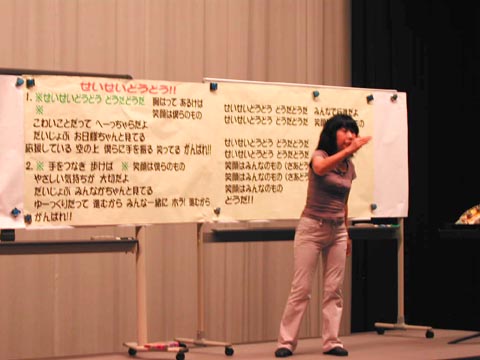 せいせいどうどう!!
1. ※せいせいどうどう どうだどうだ 胸はって あるけば
※ 笑顔は僕らのもの
こわいことだって へーっちゃらだよ
だいじょぶ お日様ちゃんと見てる
応援している 空の上 僕らに手を振る 笑ってる がんばれ!!
2. ※ 手をつなぎ 歩けば ※ 笑顔は僕らのもの
やさしい気持ちが 大切だよ
だいじょぶ みんながちゃんと見てる
ゆーっくりだって 進むから みんな一緒に ホラ! 進むから
がんばれ!!
せいせいどうどう どうだどうだ みんなで
せいせいどうどう どうだどうだ 笑顔
せいせいどうどう どうだどうだ
せいせいどうどう どうだどうだ
笑顔はみんなのもの (さあどう
笑顔はみんなのもの (さあどう
笑顔はみんなのもの
どうだ!!